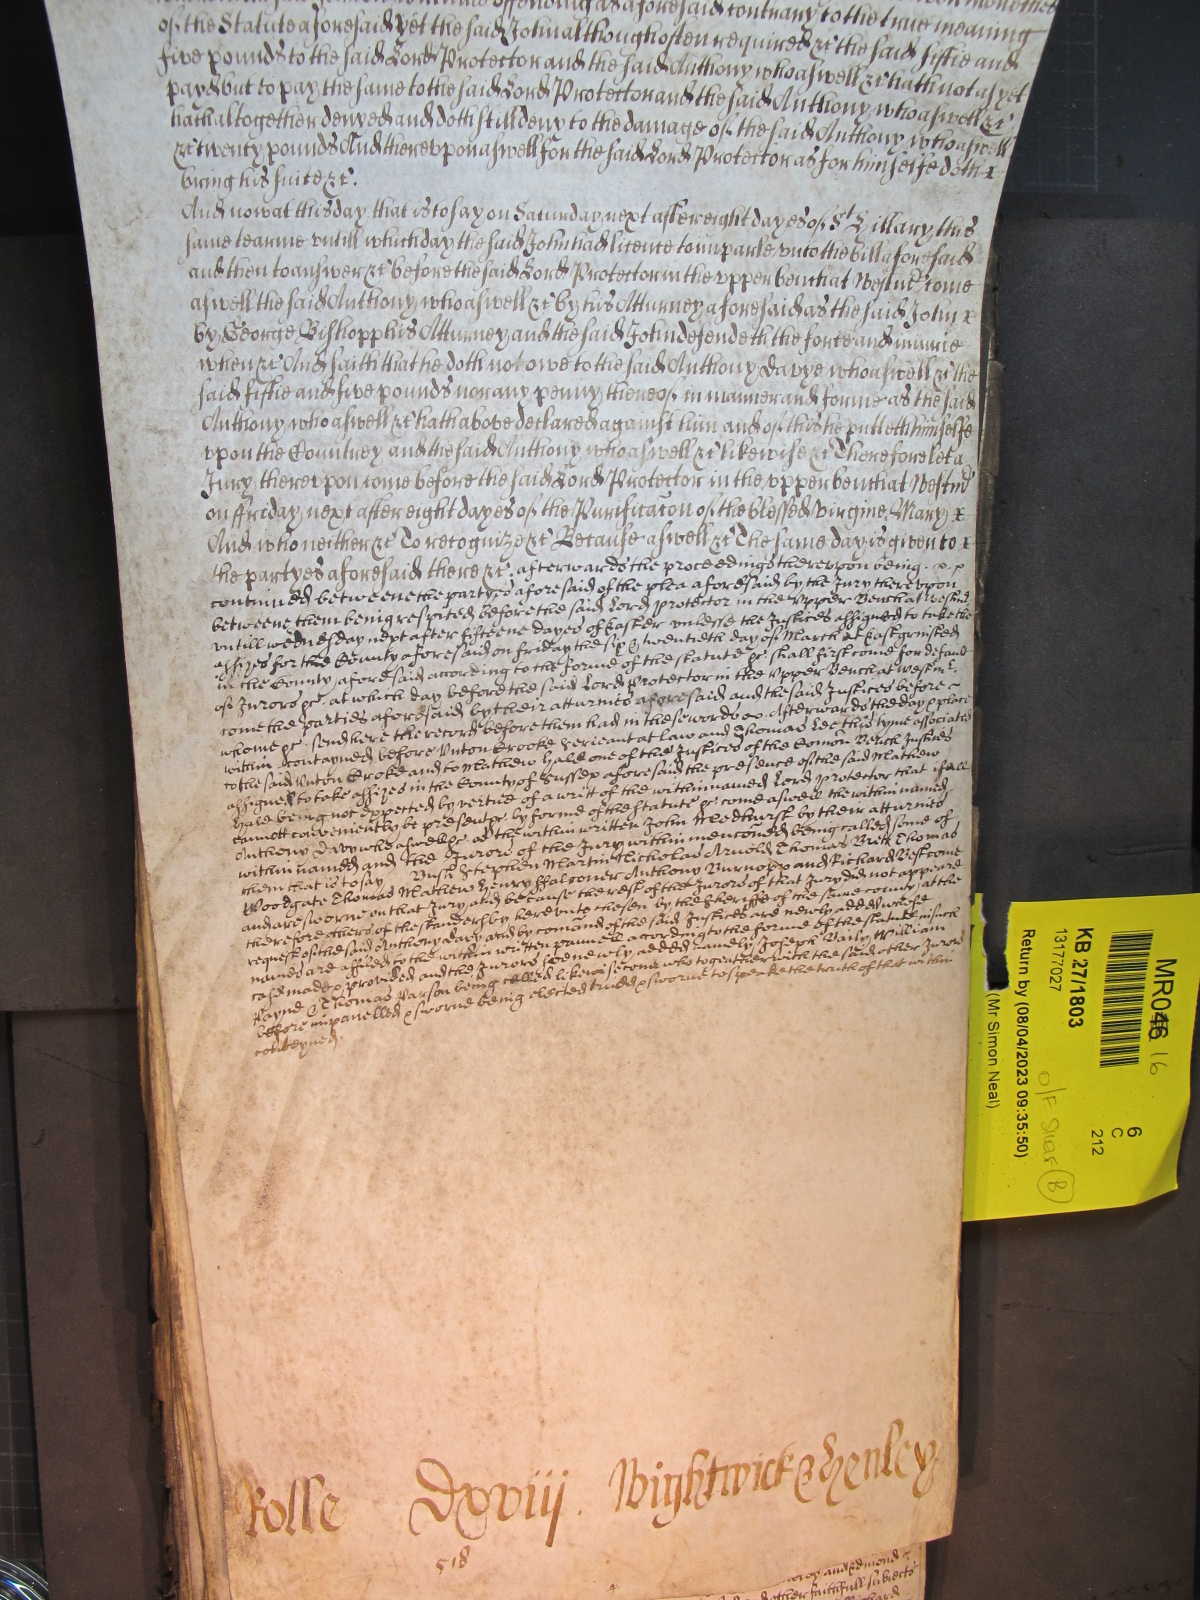 of the Statute aforesaid yet the said John although often required &c the said fiftie and
five pounds to the said Lord Protector and the said Anthony who aswell &c hath not as yet
payd but to pay the same to the said Lord Protector and the said Anthony who aswell &c
hath altogether denyed and doth still deny to the damage of the said Anthony who aswell
&c twenty pounds And therevpon aswell for the said Lord Protector as for himselfe doth
bring his suite &c.
And now at this day that is to say on Saturday next after eight dayes of St Hillary this
same tearme vntill which day the said John had licence to imparle vnto the bill aforesaid
and then to answer &c before the said Lord Protector in the vpper bench at Westmr come
aswell the said Anthony who aswell &c by his Atturney aforesaid as the said John
by George Bishopp his Atturney and the said John defendeth the force and iniurie
when &c And saith that he doth not owe to the said Anthony Davye who aswell &c the
said fiftie and five pounds nor any penny thereof in manner and forme as the said
Anthony who aswell &c hath above declared against him and of this he putteth himselfe
vpon the Countrey and the said Anthony who aswell &c likewise &c Therefore let a
Jury therevpon come before the said Lord Protector in the vpper bench at Westmr
on ffriday next after eight dayes of the Purificacon of the blessed virgine Mary
And who neither &c To recognize &c Because aswell &c The same day is given to
the partyes aforesaid there &c. afterwards the proceedings therevpon being
continued betweene the partyes aforesaid of the plea aforesaid by the Jury therevpon
betweene them being respited before the said Lord Protector in the Vpper Bench at Westmr
vntill wednesday next after fifteene dayes of Easter vnlesse the Justices assigned to take the
assizes for the County aforesaid on friday the six & twentieth day of March at Eastgrinsted
in the County aforesaid according to the forme of the statute &c shall first come for default
of Jurors &c. at which day before the said Lord Protector in the Vpper Bench at Westmr.
come the parties aforesaid by their atturnies aforesaid and the said Justices before
whome &c. send here the record before them had in these words Afterwards the day & place
within contayned before Vnton Crooke Serieant at law and Thomas Lee this tyme associated
to the said Vnton Croke and to Mathew Hale one of the Justices of the Comon Bench Justices
assigned to take assizes in the County of Sussex aforesaid the presence of the said Mathew
Hale being not expected by vertue of a writt of the withinnamed Lord Protector that if all
cannott conveniently be present &c. by forme of the statute &c come aswell the within named
Anthony Davy who aswell &c. as the within written John Medhurst by their atturnies
within named and the Jurors of the Jury within mencioned being called some of
them that is to say Bush Stephen Martin Nicholas Arnold Thomas Brett Thomas
Woodgate Thomas Mathew Henry ffalconer Anthony Burnopp and Richard Best come
and are sworne on that Jury and because the rest of the Jurors of that Jury did not appeare
therefore others of the standers by herevnto chosen by the sheriffe of the same county at the
request of the said Anthony Davy and by comand of the said Justices are newly added whose
names are affiled to the within written pannell according to the forme of the statute in such
case made & provided and the Jurors soe newly added namely Joseph Baily William
Payne & Thomas Parson being called likewise come who togeather with the said other Jurors
before impanelled & sworne being elected tryed & sworne to speake the truth of that within
conteyned.
Rolle Dxviij. Wightwick & Henley
518
and Edmond
other faithfull subiects
MR046 16
KB 27/1803
13177027
Return by (08/04/2023 09:35:50)
(Mr Simon Neal)
6
C
212
O/F Shar B